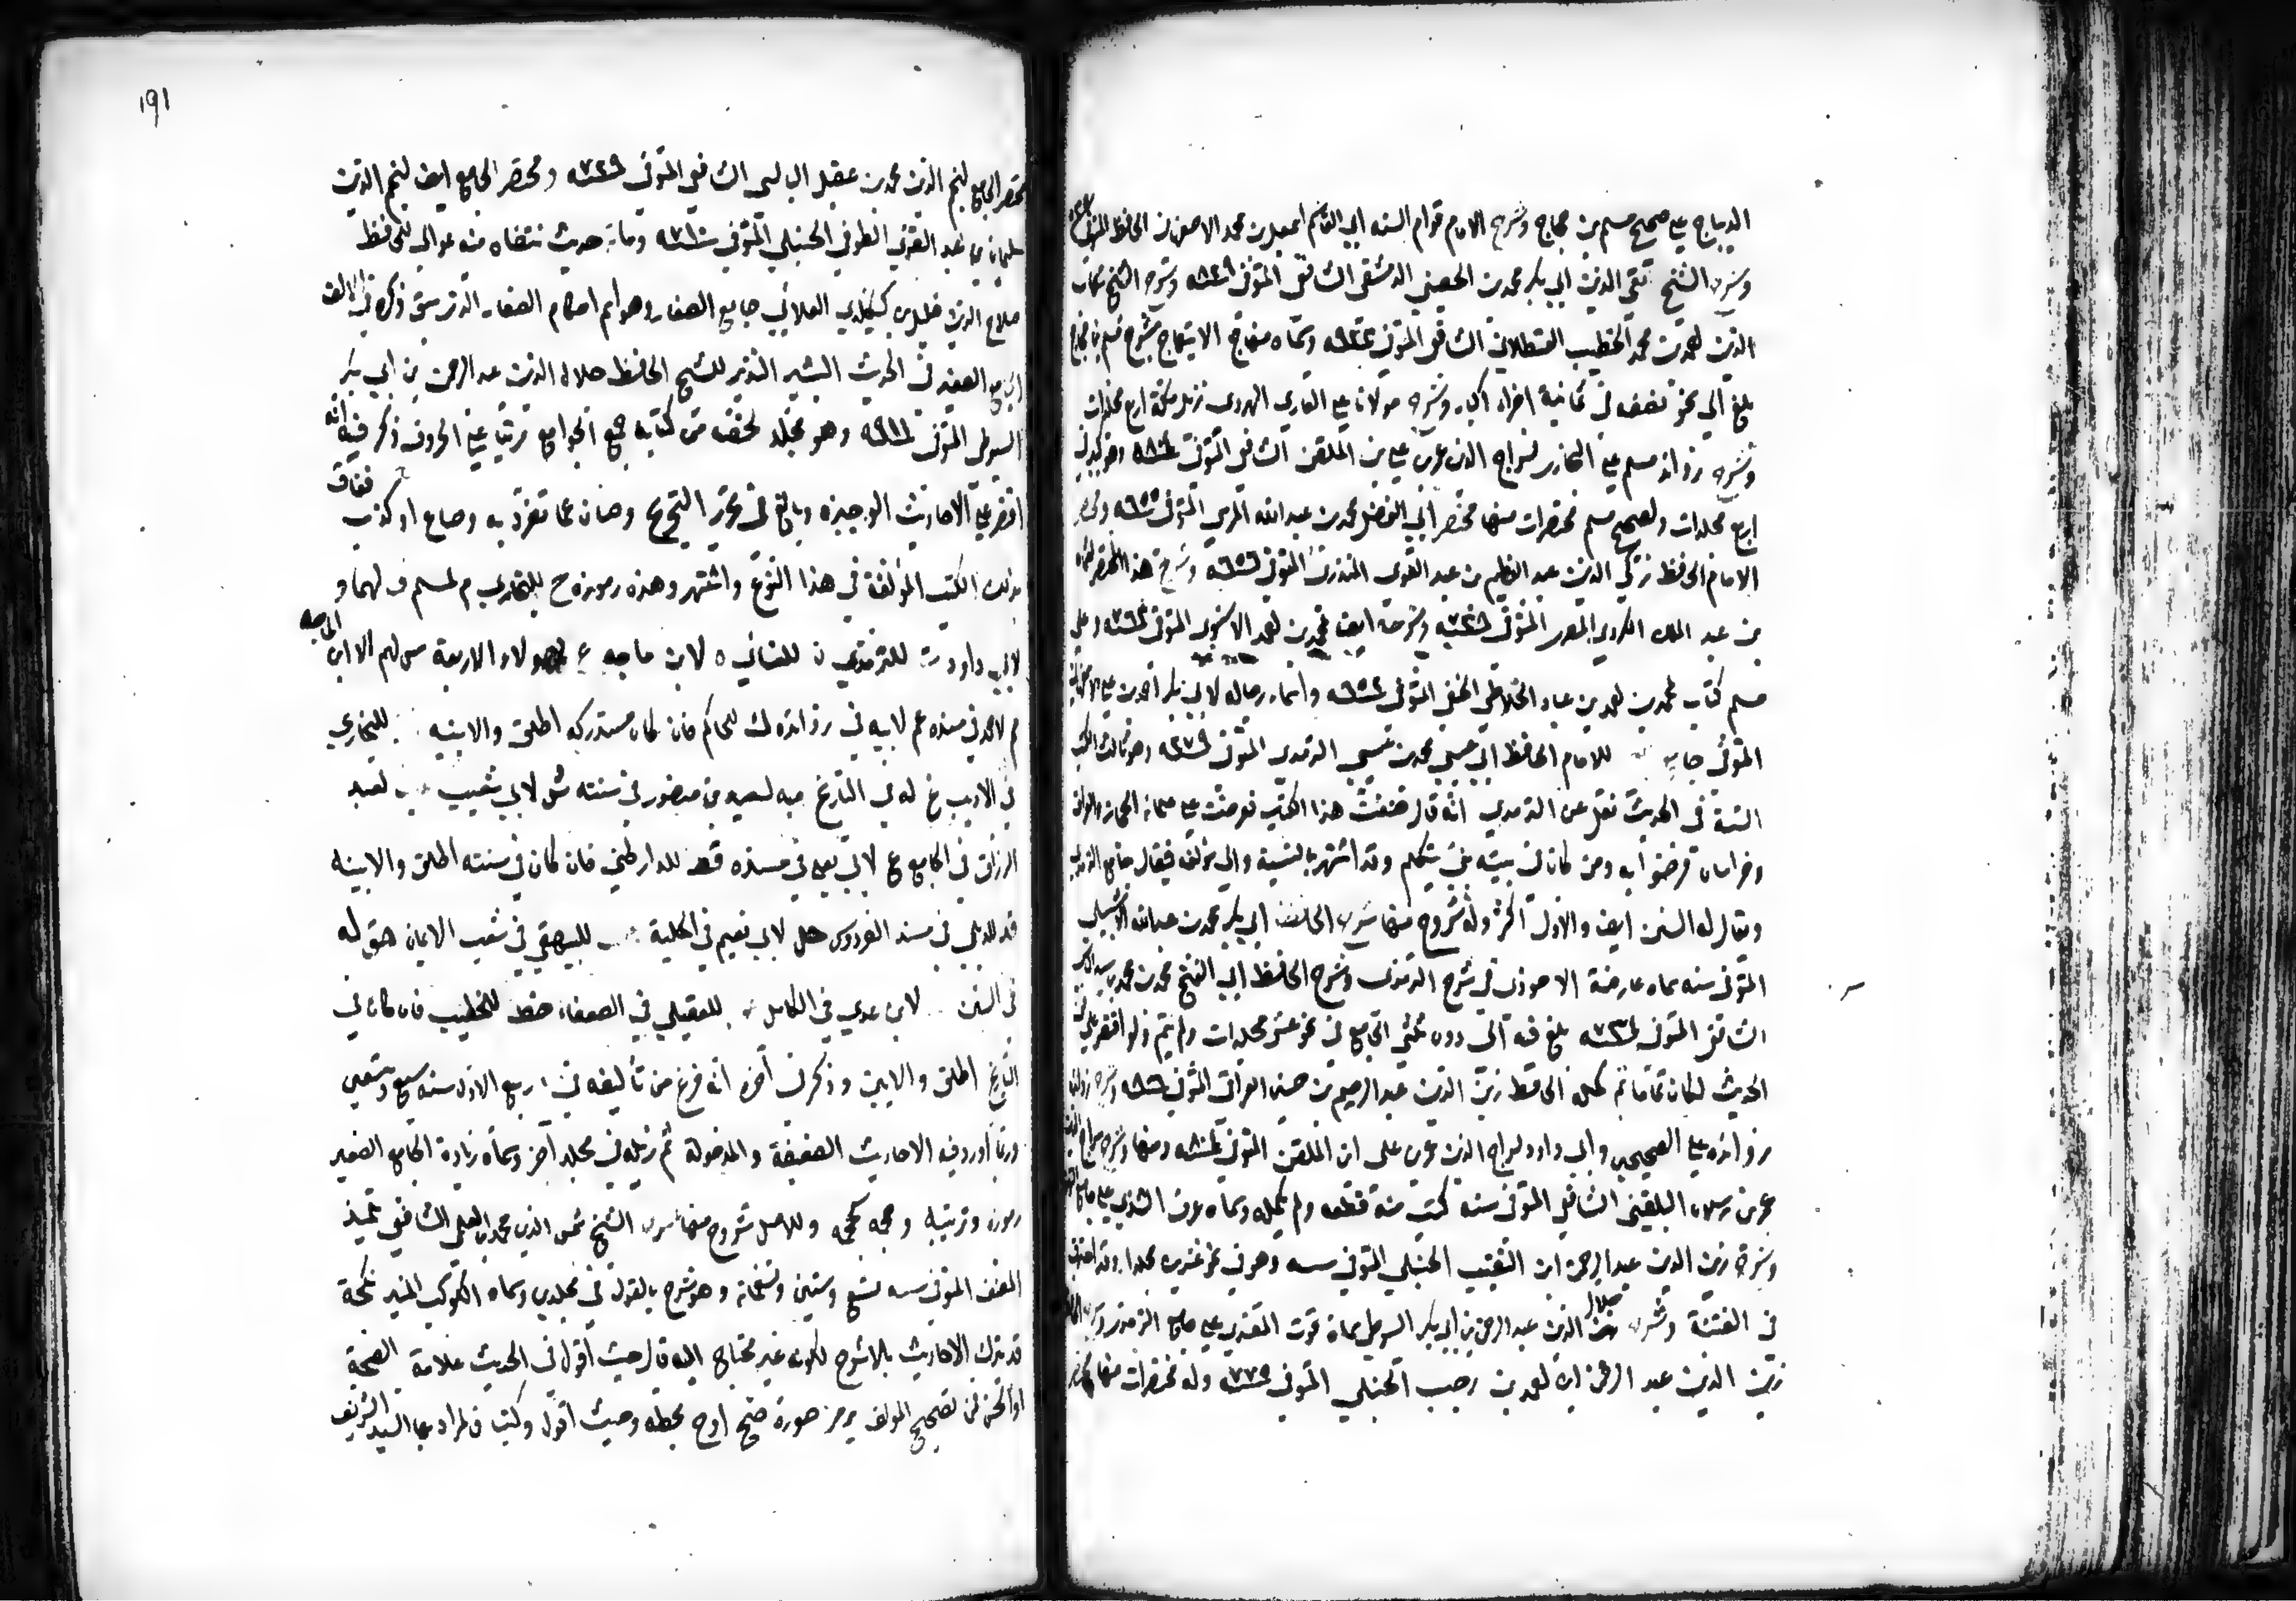 الديباج على صحيح مسلم بن حجاج وشرح الامام قوام السنه ابي القاسم اسمعيل بن محمد الاصفهاني الحافظ المتوفى
وشرح الشيخ تقي الدين ابي بكر محمد بن الحصني الدمشقي الشافعي المتوفى ٨٢٩ وشرح الشيخ شهاب
الدين احمد بن محمد الخطيب القسطلاني الشافعي المتوفى ٩٢٣ وسماه منهاج الابتهاج بشرح مسلم بن حجاج
بلغ الى نحو نصفه في ثمانية اجزاء كبار وشرح مولانا علي القاري الهروي نزيل مكة اربع مجلدات
وشرح زوائد مسلم على البخاري لسراج الدين عمر بن علي بن الملقن الشافعي المتوفى ٨٠٤ وهو كبير في
اربع مجلدات ولصحيح مسلم مختصرات منها مختصر ابي الفضل محمد بن عبد الله المرسي المتوفى ٦٥٥ ومختصر
الامام الحافظ زكي الدين عبد العظيم بن عبد القوي المنذري المتوفى ٦٥٦ وشرح هذا المختصر
بن عبد الملك الكردي المصري المتوفى وشرحه ايضا محمد بن احمد الاسنوي المتوفى ٧٦٣ وعلى
مسلم كتاب لمحمد بن احمد بن عباد الخلاطي الحنفي المتوفى ٦٥٢ واسماء رجاله لابي بكر احمد بن علي الاصفهاني
المتوفى للامام الحافظ ابي عيسى محمد بن عيسى الترمذي المتوفى ٢٧٩ وهو ثالث الكتب
الستة في الحديث نقل عن الترمذي انه قال صنفت هذا الكتاب فعرضته على علماء الحجاز والعراق
وخراسان فرضوا به ومن كان في بيته نبي يتكلم وقد اشتهر بالنسبة الى مؤلفه فيقال جامع الترمذي
ويقال له السنن ايضا والاول اكثر وله شروح منها شرح الحافظ ابي بكر محمد بن عبدالله الاشبيلي
المتوفى سنه سماه عارضة الاحوذي في شرح الترمذي وشرح الحافظ ابي الفتح محمد بن محمد بن سيد الناس
الشافعي المتوفى ٧٣٤ بلغ فيه الى دون ثلثي الجامع في نحو عشر مجلدات ولم يتم ولو اقتصر على فن
الحديث لكان تماما ثم كمله الحافظ زين الدين عبد الرحيم بن حسين العراقي المتوفى ٨٠٦ وشرح زوائد
زوائده على الصحيحين وابي داود لسراج الدين عمر بن علي ابن الملقن المتوفى ٨٠٤ ومنها شرح سراج الدين
عمر بن رسلان البلقيني الشافعي المتوفى سنه كتب منه قطعه ولم يكمله وسماه عرف الشذي على جامع الترمذي
وشرح زين الدين عبد الرحمن ابن النقيب الحنبلي المتوفى سنه وهو في نحو عشرين مجلدا وقد احترق
في الفتنة وشرح جلال الدين عبد الرحمن بن ابي بكر السيوطي سماه قوت المغتذي على جامع الترمذي وشرح
زين الدين عبد الرحمن ابن احمد بن رجب الحنبلي المتوفى وله مختصرات منها مختصر
١٩١
مختصر الجامع لنجم الدين محمد بن عقيل البالسي الشافعي المتوفى ٧٢٩ ومختصر الجامع ايضا لنجم الدين
سليمان بن عبد القوي الطوفي الحنبلي المتوفى ٧١٠ ومائة حديث منتقاه منه عوالي للحافظ
صلاح الدين خليل بن كيكلدي العلائي جامع الصغار وهو اسم احكام الصغار الذي سبق ذكره في الالف
الجامع الصغير في الحديث البشير النذير للشيخ الحافظ جلال الدين عبد الرحمن بن ابي بكر
السيوطي المتوفى ٩١١ وهو مجلد لخصه من كتابه جمع الجوامع مرتبا على الحروف ذكر فيه انه
اقتصر على الاحاديث الوجيزه وبالغ في تحرير التخريج وصان عما تفرد به وضاع او كذاب ففاق
بذلك الكتب المؤلفة في هذا النوع واشتهر وهذه رموزه خ للبخاري م لمسلم ق لهما د
لابي داود ت للترمذي ن للنسائي ه لابن ماجه ٤ لهؤلاء الاربعة ٣ لهم الا ابن ماجه
حم لاحمد في مسنده عم لابنه في زوائده ك للحاكم فان كان مستدركه اطلق والا بينه للبخاري
في الادب تخ له في التاريخ ص لسعيد بن منصور في سننه ش لابي شيبه عب لعبد
الرزاق في الجامع ع لابي يعلى في مسنده قط للدارقطني فان كان في سننه اطلق والا بينه
فر للديلمي في مسند الفردوس حل لابي نعيم في الحلية هب للبيهقي في شعب الايمان هق له
في السنن لابن عدي في الكامل عق للعقيلي في الضعفاء خط للخطيب فان كان في
التاريخ اطلق والا بين وذكر في آخره انه فرغ من تأليفه في ربيع الاول سنه سبع وتسعمائة
وربما اورد فيه الاحاديث الضعيفة والمدخولة ثم ذيله في مجلد آخر وسماه زيادة الجامع الصغير
رموزه وترتيبه وحجمه كحجمه وللاصل شروح منها شرح الشيخ شمس الدين محمد بن العلقمي الشافعي تلميذ
المصنف المتوفى سنه تسع وستين وتسعمائة وهو شرح بالقول في مجلدين وسماه الكوكب المنير لكنه
قد يترك الاحاديث بلا شرح لكونه غير محتاج اليه قال حيث اقول في الحديث علامة الصحة
او الحسن فمن تصحيح المؤلف برمز صورة صح او ح بخطه وحيث اقول وكتب فالمراد بها السيد الشريف